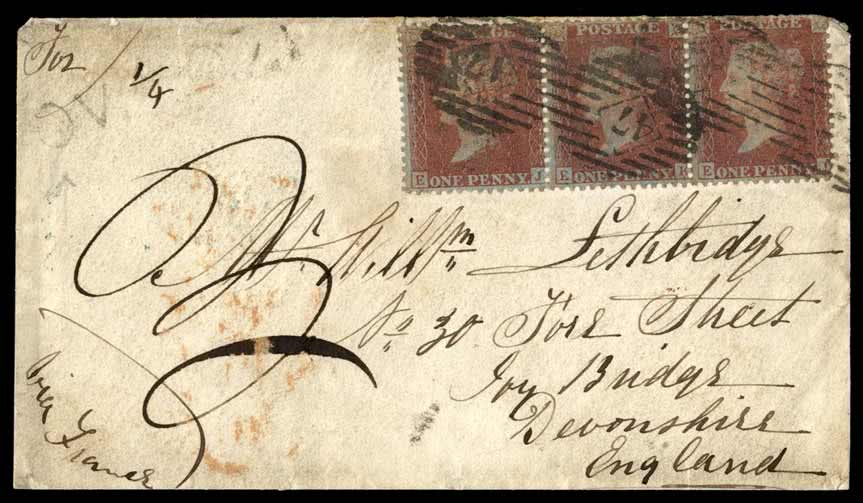 For
1/4
POSTAGE
E ONE PENNY J
E ONE PENNY K
E ONE PENNY
47
3
Mr. Willm Lethbidge
No 30 Fore Street
Ivy Bridge
Devonshire
England
via France